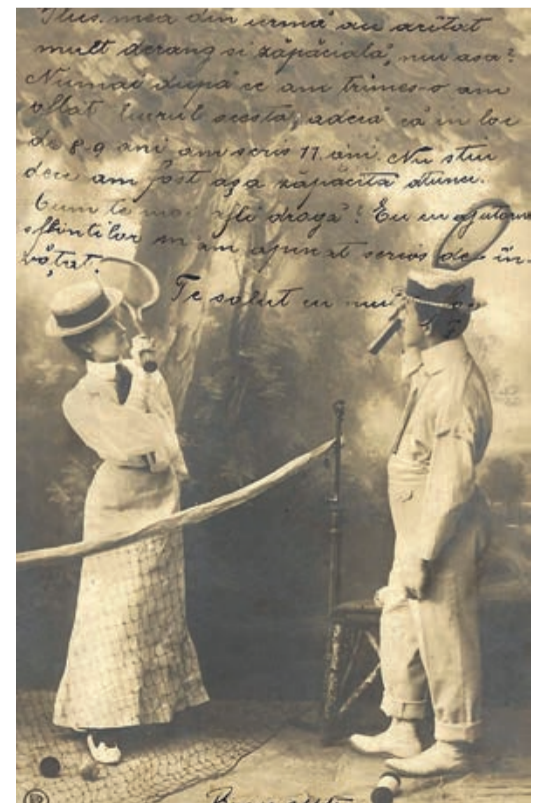 mea din urmă au arătat
mult derang și zăpăcială, nu așa?
Numai după ce am trimes-o am
aflat lucrul acesta, adecă că în loc
de 8-9 ani am scris 11 ani. Nu știu
dece am fost așa zăpăcită atunci.
Cum te mai afli dragă? Eu cu ajutorul
sfinților m'am apucat serios de în-
vățat.
Te salut cu